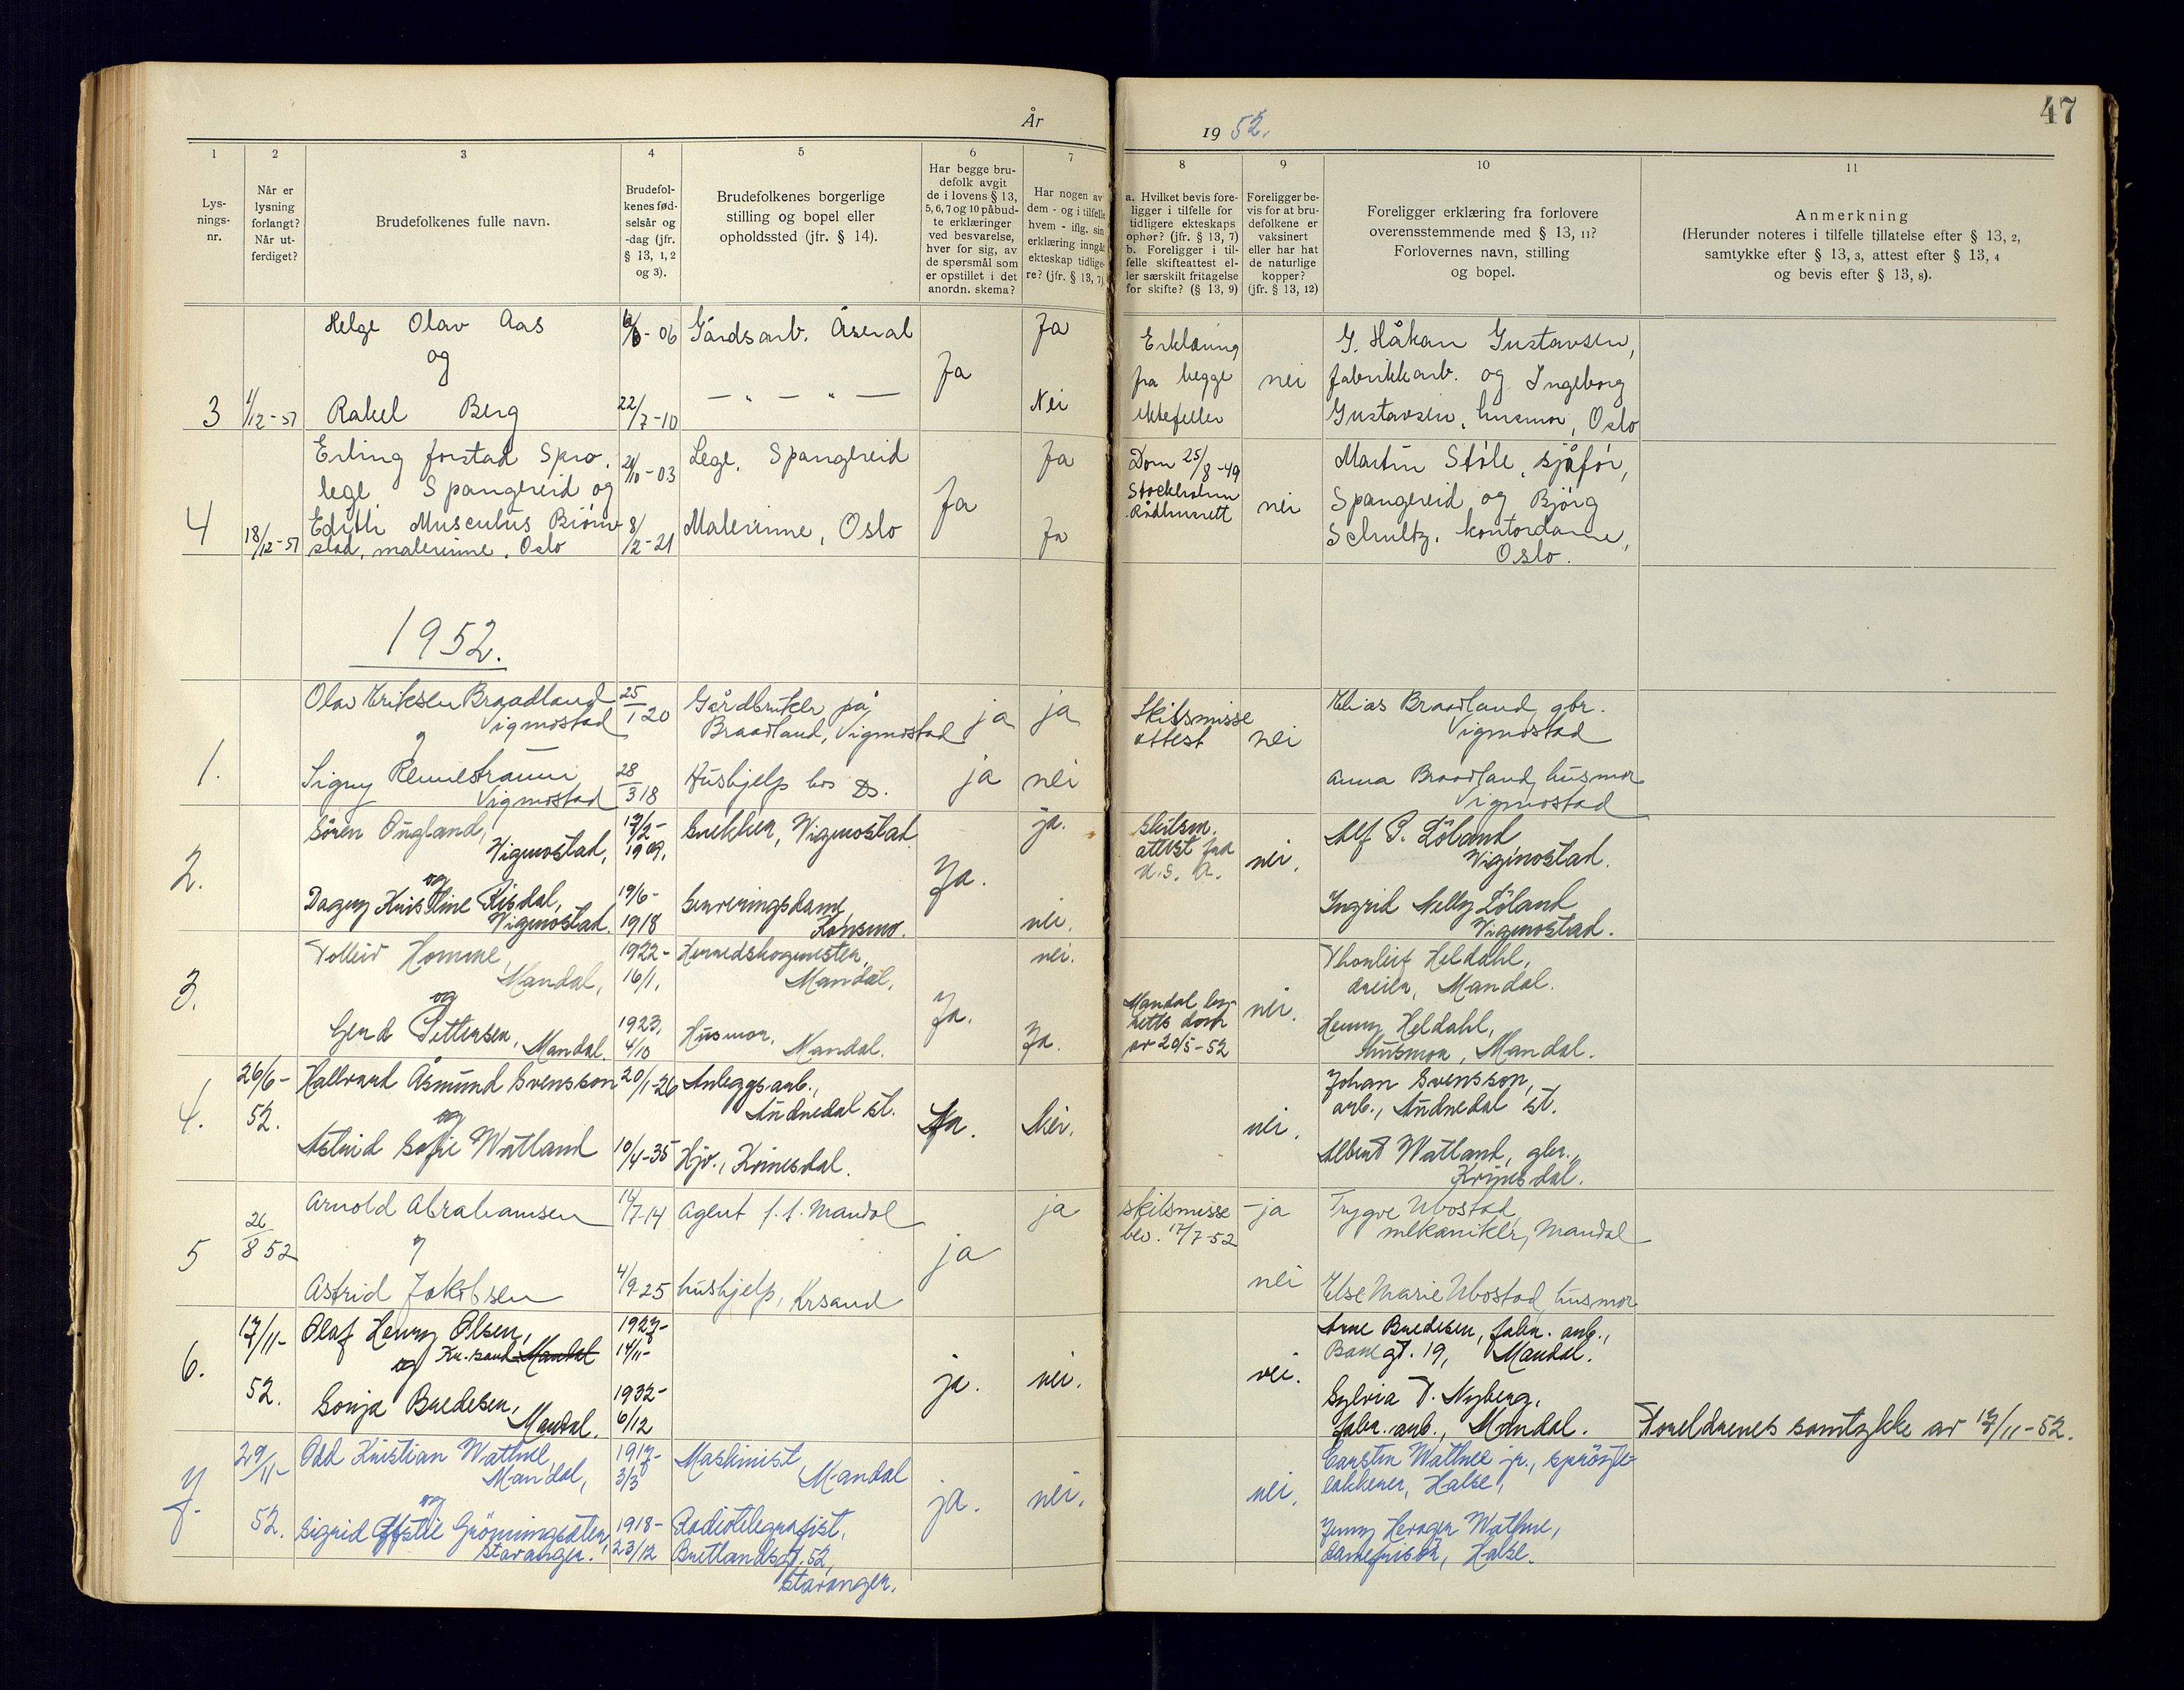 År
19 52.
47
1
2
3
4
5
6
7
8
9
10
11
Lys-
nings-
nr.
Når er
lysning
forlangt?
Når ut-
ferdiget?
Brudefolkenes fulle navn.
Brudefol-
kenes fød-
selsår og
-dag (jfr.
§ 13, 1, 2
og 3).
Brudefolkenes borgerlige
stilling og bopel eller
opholdssted (jfr. § 14).
Har begge bru-
defolk avgit
de i lovens § 13,
5, 6, 7 og 10 påbud-
te erklæringer
ved besvarelse,
hver for sig, av
de spørsmål som
er opstillet i det
anordn. skema?
Har nogen av
dem - og i tilfelle
hvem - iflg. sin
erklæring inngått
ekteskap tidlige-
re? (jfr. § 13, 7).
a. Hvilket bevis fore-
ligger i tilfelle for
tidligere ekteskaps
ophør? (jfr. § 13, 7)
b. Foreligger i til-
felle skifteattest el-
ler særskilt fritagelse
for skifte? (§ 13, 9)
Foreligger be-
vis for at bru-
defolkene er
vaksinert
eller har hat
de naturlige
kopper?
(jfr. § 13, 12)
Foreligger erklæring fra forlovere
overensstemmende med § 13, 11?
Forlovernes navn, stilling
og bopel.
Anmerkning
(Herunder noteres i tilfelle tillatelse efter § 13, 2,
samtykke efter § 13, 3, attest efter § 13, 4
og bevis efter § 13, 8).
3
1/12-51
Helge Olav Aas
og
Rakel Berg
- 06
22/7-10
Gårdsarb. Åseral
— " — " —
Ja
Ja
Nei
Erklæring
fra begge
ektefeller
nei
G. Håkan Gustavsen,
fabrikkarb. og Ingeborg
Gustavsen, husmor, Oslo
4
18/12-51
Erling Jorstad Spro,
lege Spangereid og
Edith Musculus Bjørn-
stad, malerinne, Oslo
21/10-03
8/2-21
Lege, Spangereid
Malerinne, Oslo
Ja
Ja
Ja
Dom 25/8-49
Stockholm
Rådhusrett
nei
Martin Støle, sjåfør,
Spangereid og Bjørg
Schultz, kontordame,
Oslo.
1952.
1.
Olav Eriksen Braadland
Vigmostad
og
Signy Rennestraum
Vigmostad
25/1 20
28/3 18
Gårdbruker på
Braadland, Vigmostad
Hushjelp hos Ds.
ja
ja
ja
nei
Skilsmisse
attest
nei
Elias Braadland, gbr.
Vigmostad
Anna Braadland, husmor
Vigmostad
2.
Sören Augland,
Vigmostad,
og
Dagny Kristine Risdal,
Vigmostad.
17/2-
1909.
19/6-
1918
Snekker, Vigmostad
Serveringsdame
Konsmo.
Ja.
ja.
nei.
Skilsm.
attest fra
U.S.A.
nei.
Alf P. Löland
Vigmostad.
Ingrid Nelly Löland
Vigmostad.
3.
Tolleiv Homme,
Mandal,
og
Gerd Pettersen,
Mandal.
1922-
16/1.
1923,
4/10
Herredskogmester,
Mandal.
Husmor, Mandal.
Ja.
nei.
Ja.
Mandal by-
retts dom
av 20/5-52
nei.
Thorleif Heldahl,
dreier, Mandal.
Henny Heldahl,
husmor, Mandal.
4.
26/6-
52.
Hallvard Åsmund Svensson
og
Astrid Sofie Watland
20/1-26
10/4-35
Anleggsarb.,
Audnedal st.
Hjv., Kvinesdal.
Ja.
Nei.
nei.
Johan Svensson,
arb., Audnedal st.
Albert Watland, gbr.,
Kvinesdal.
5
26/8 52
Arnold Abrahamsen
og
Astrid Jakobsen
14/7-14
4/9-25
Agent f.t. Mandal
hushjelp, Krsand
ja
ja
skilsmisse
bev. 17/7-52
- ja
nei
Trygve Ubostad
mekaniker, Mandal
Else Marie Ubostad, husmor
6.
17/11-
52.
Olaf Henry Olsen,
og Kr.sand Mandal
Sonja Bredesen,
Mandal.
1927-
14/11-
1932-
6/12
ja.
nei.
nei.
Arne Bredesen, fabr. arb.,
Banegt. 19, Mandal.
Sylvia T. Nyberg,
fabr. arb., Mandal.
Foreldrenes samtykke av 17/11-52.
7.
29/11-
52.
Odd Kristian Wathne,
Mandal,
og
Sigrid Grönningsæter,
Stavanger.
1917-
3/3
1918-
23/12
Maskinist,
Mandal
Radiotelegrafist,
Bretlandsgt. 52,
Stavanger.
ja.
nei.
nei.
Carsten Wathne jr., sprøyte-
lakkerer, Halse,
Jenny Wathne,
damefrisör, Halse.